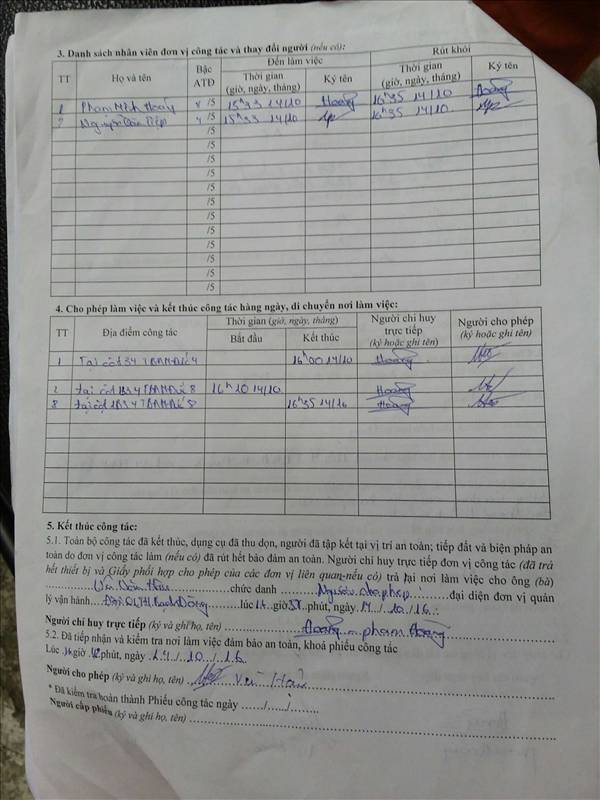 3. Danh sách nhân viên đơn vị công tác và thay đổi người (nếu có):
TT Họ và tên Bậc ATĐ Đến làm việc Rút khỏi
Thời gian (giờ, ngày, tháng) Ký tên Thời gian (giờ, ngày, tháng) Ký tên
1 Phạm Minh 4 /5 15h33 14/10 Hoàng 16h35 14/10 Hoàng
2 Nguyễn Văn Tiệp 4 /5 15h33 14/10 16h35 14/10
/5
/5
/5
/5
/5
/5
/5
/5
/5
/5
/5
/5
4. Cho phép làm việc và kết thúc công tác hàng ngày, di chuyển nơi làm việc:
TT Địa điểm công tác Thời gian (giờ, ngày, tháng) Người chỉ huy trực tiếp (ký hoặc ghi tên) Người cho phép (ký hoặc ghi tên)
Bắt đầu Kết thúc
1 Tại cột 34 16h00 14/10 Hoàng
2 tại cột 8 16h10 14/10 Hoàng
tại cột 16h35 14/10 Hoàng
5. Kết thúc công tác:
5.1. Toàn bộ công tác đã kết thúc, dụng cụ đã thu dọn, người đã tập kết tại vị trí an toàn; tiếp đất và biện pháp an
toàn do đơn vị công tác làm (nếu có) đã rút hết bảo đảm an toàn. Người chỉ huy trực tiếp đơn vị công tác (đã trả
hết thiết bị và Giấy phối hợp cho phép của các đơn vị liên quan-nếu có) trả lại nơi làm việc cho ông (bà)
Văn chức danh Người cho phép đại diện đơn vị quản
lý vận hành Đội lúc giờ phút, ngày / 10 / 16
Người chỉ huy trực tiếp (ký và ghi họ, tên) Hoàng phạm Hoàng
5.2. Đã tiếp nhận và kiểm tra nơi làm việc đảm bảo an toàn, khoá phiếu công tác
Lúc giờ phút, ngày 14 / 10 / 16
Người cho phép (ký và ghi họ, tên)
* Đã kiểm tra hoàn thành Phiếu công tác ngày ....../....../......
Người cấp phiếu (ký và ghi họ, tên)